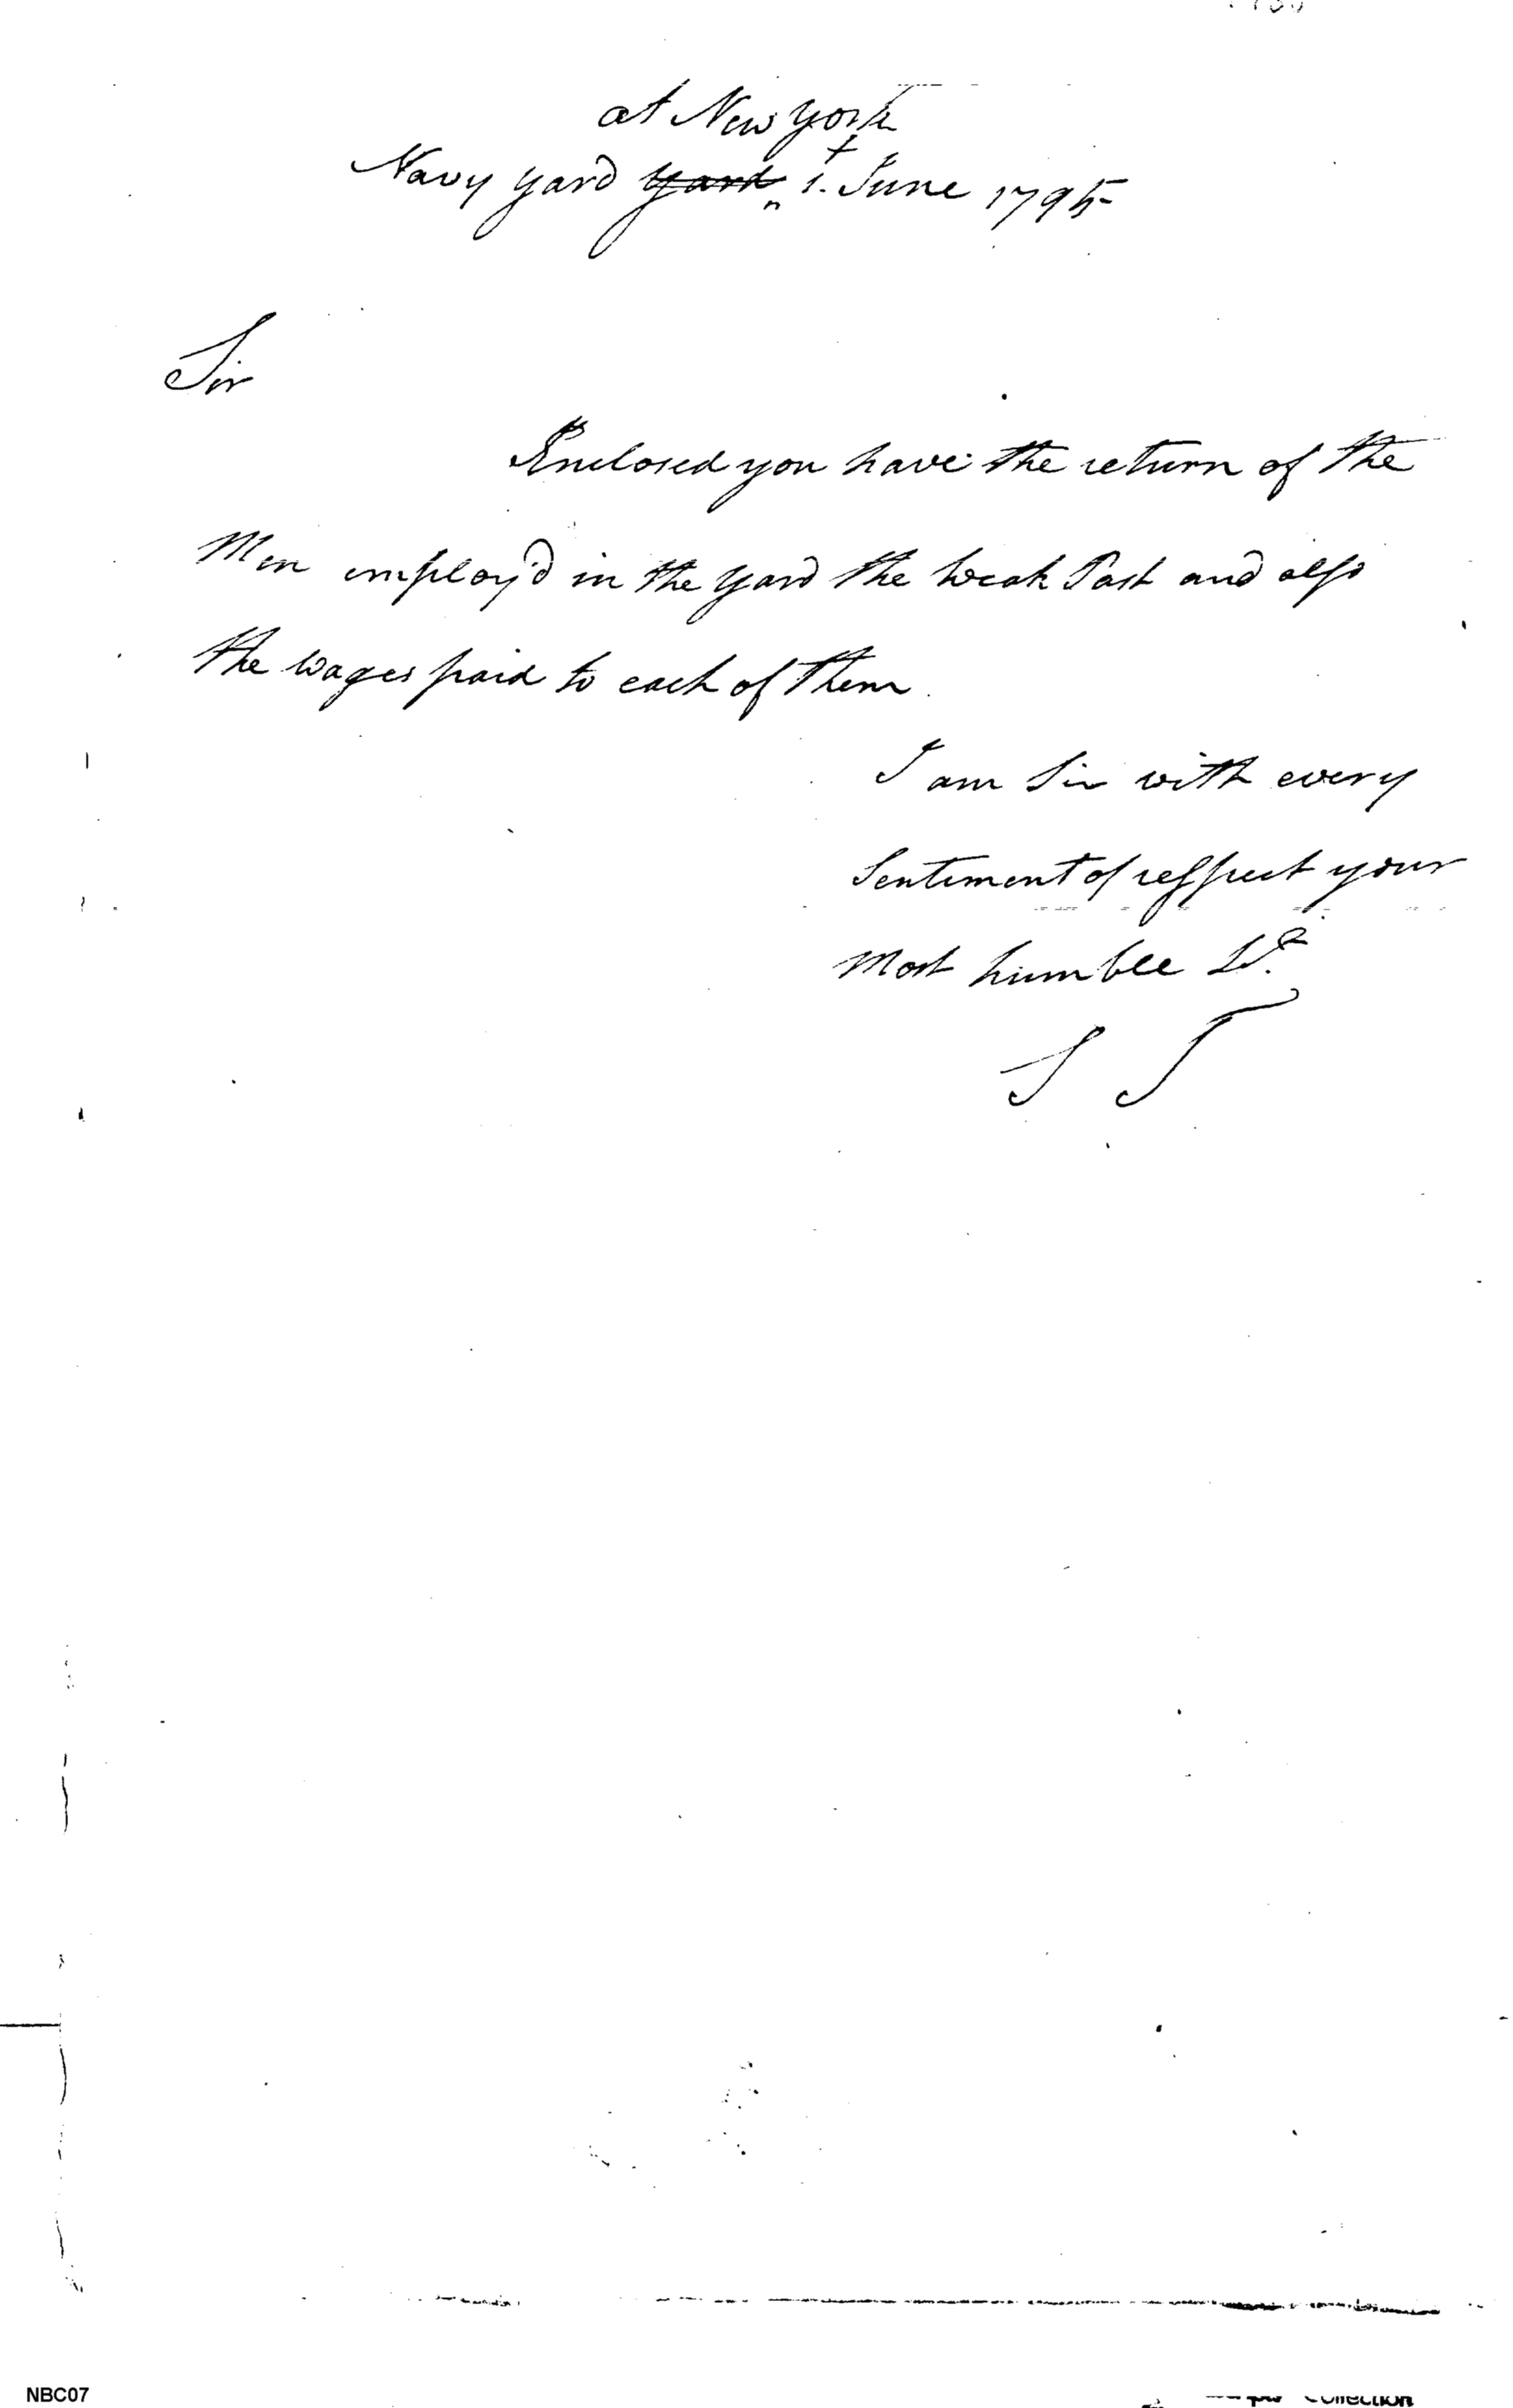 at New York
Navy yard yard 1.t June 1795
Sir
Enclosed you have the return of the
Men employ'd in the yard the Weak Past and also
the Wages paid to each of them.
I am Sir with every
Sentiment of respect your
Most humble St.
S T
NBC07
Collection